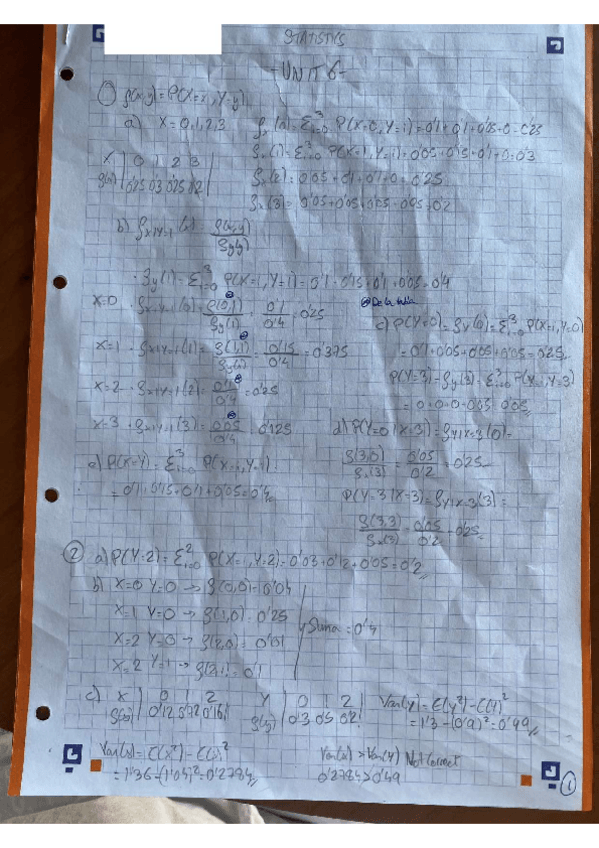 STATISTICS
- UNIT 6 -
① p(x,y) = P(X=x, Y=y)
a) X = 0,1,2,3
Px(0) = Σ³i=0 P(X=0, Y=i) = 0'1+0'1+0'05+0 = 0'25
Px(1) = Σ³i=0 P(X=1, Y=i) = 0'05+0'15+0'1+0 = 0'3
Px(2) = 0'05+0'1+0'1+0 = 0'25
Px(3) = 0'05+0'05+0'05+0'05 = 0'2
X | 0 1 2 3
p(x) | 0'25 0'3 0'25 0'2
b) Px|Y=1(x) = p(x,y) / Py(y)
· Py(1) = Σ³i=0 P(X=i, Y=1) = 0'1+0'15+0'1+0'05 = 0'4
X=0 · Px|Y=1(0) = p(0,1) / Py(1) = 0'1 / 0'4 = 0'25
X=1 · Px|Y=1(1) = p(1,1) / Py(1) = 0'15 / 0'4 = 0'375
X=2 · Px|Y=1(2) = 0'1 / 0'4 = 0'25
X=3 · Px|Y=1(3) = 0'05 / 0'4 = 0'125
De la tabla
c) P(Y=0) = Py(0) = Σ³i=0 P(X=i, Y=0)
= 0'1+0'05+0'05+0'05 = 0'25
P(Y=3) = Py(3) = Σ³i=0 P(X=i, Y=3)
= 0+0+0+0'05 = 0'05
d) P(Y=0|X=3) = PY|X=3(0) =
p(3,0) / Px(3) = 0'05 / 0'2 = 0'25
P(Y=3|X=3) = PY|X=3(3) =
p(3,3) / Px(3) = 0'05 / 0'2 = 0'25
e) P(X=Y) = Σ³i=0 P(X=i, Y=i)
= 0'1+0'15+0'1+0'05 = 0'4
② a) P(Y=2) = Σ²i=0 P(X=i, Y=2) = 0'03+0'12+0'05 = 0'2
b) X=0 Y=0 → p(0,0) = 0'04
X=1 Y=0 → p(1,0) = 0'25
X=2 Y=0 → p(2,0) = 0'01
X=2 Y=1 → p(2,1) = 0'1
Suma = 0'4
c) X | 0 1 2
p(x) | 0'12 0'72 0'16
Y | 0 1 2
p(y) | 0'3 0'5 0'2
Var(Y) = E(Y²) - E(Y)²
= 1'3 - (0'9)² = 0'49
Var(x) = E(X²) - E(x)²
= 1'36 - (1'04)² = 0'2784
Var(x) > Var(Y) Not Correct
0'2784 > 0'49
①